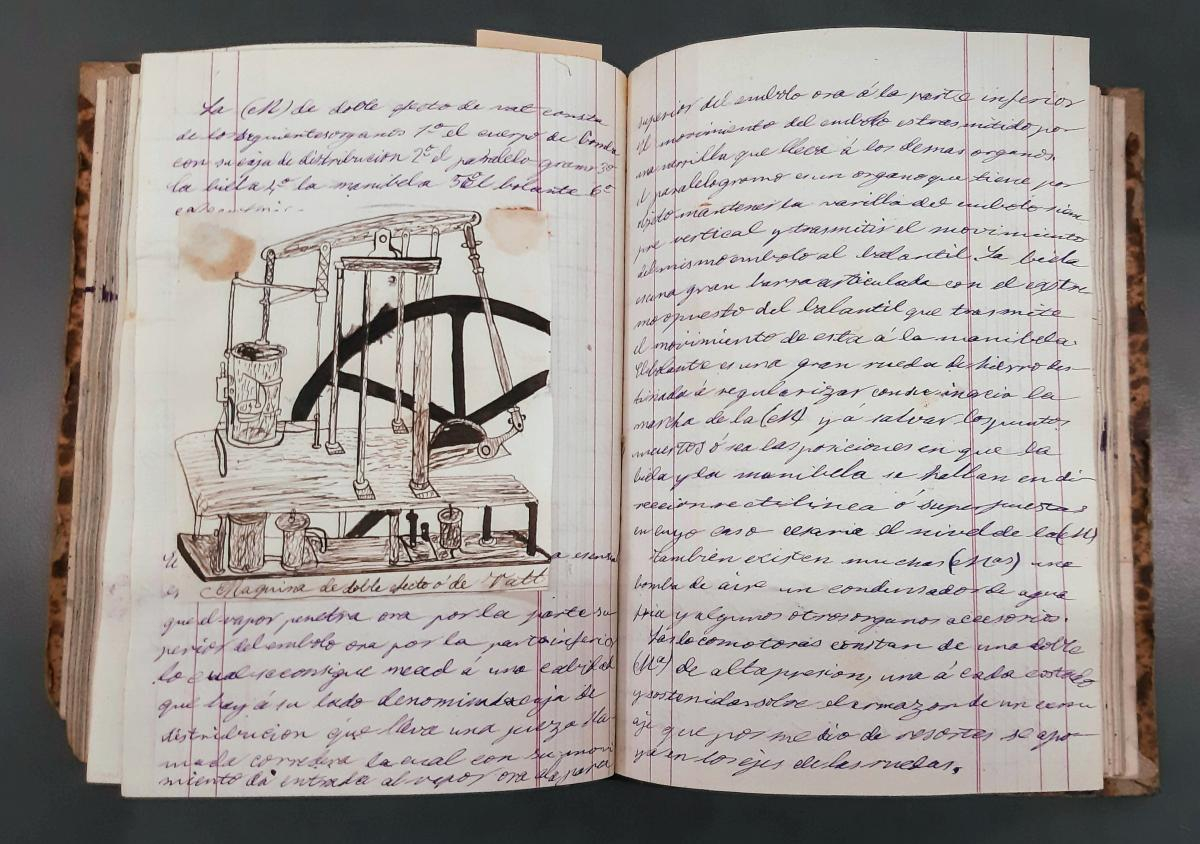 La (M) de doble efecto de vat consta
de los siguientes organos 1º el cuerpo de bomba
con su caja de distribucion 2º el paralelo gramo 3º
la biella 4º la manibela 5º El bolante 6º
Maquina de doble efecto ó de Vatt
que el vapor penetra ora por la parte su
perior del embolo ora por la parte inferior
lo cual se consigue merced á una cabidad
que hay á su lado denominada caja de
distribucion que lleva una pieza lla
mada corredera la cual con su movi
miento da entrada al vapor ora á la parte
superior del embolo ora á la parte inferior
El movimiento del embolo es trasmitido por
una varilla que lleva á los demas organos.
El paralelogramo es un organo que tiene por
objeto mantener la varilla del embolo siem
pre vertical y trasmitir el movimiento
del mismo embolo al balantil La biela
es una gran barra articulada con el extre
mo opuesto del balantil que trasmite
el movimiento de esta á la manibela.
El bolante es una gran rueda de hierro des
tinada á regularizar con su inercia la
marcha de la (M) y á salvar los puntos
muertos ó sea las posiciones en que la
biela y la manibela se hallan en di
reccion rectilinea ó superpuestas
en cuyo caso el nivel de la (M)
Tambien existen muchas (Mas) una
bomba de aire un condensador de agua
fria y algunos otros organos accesorios.
Las locomotoras constan de una doble
(Ma) de alta presion, una á cada costado
y sostenidas sobre el armazon de un carru
aje que por medio de resortes se apo
ya en los ejes de las ruedas.